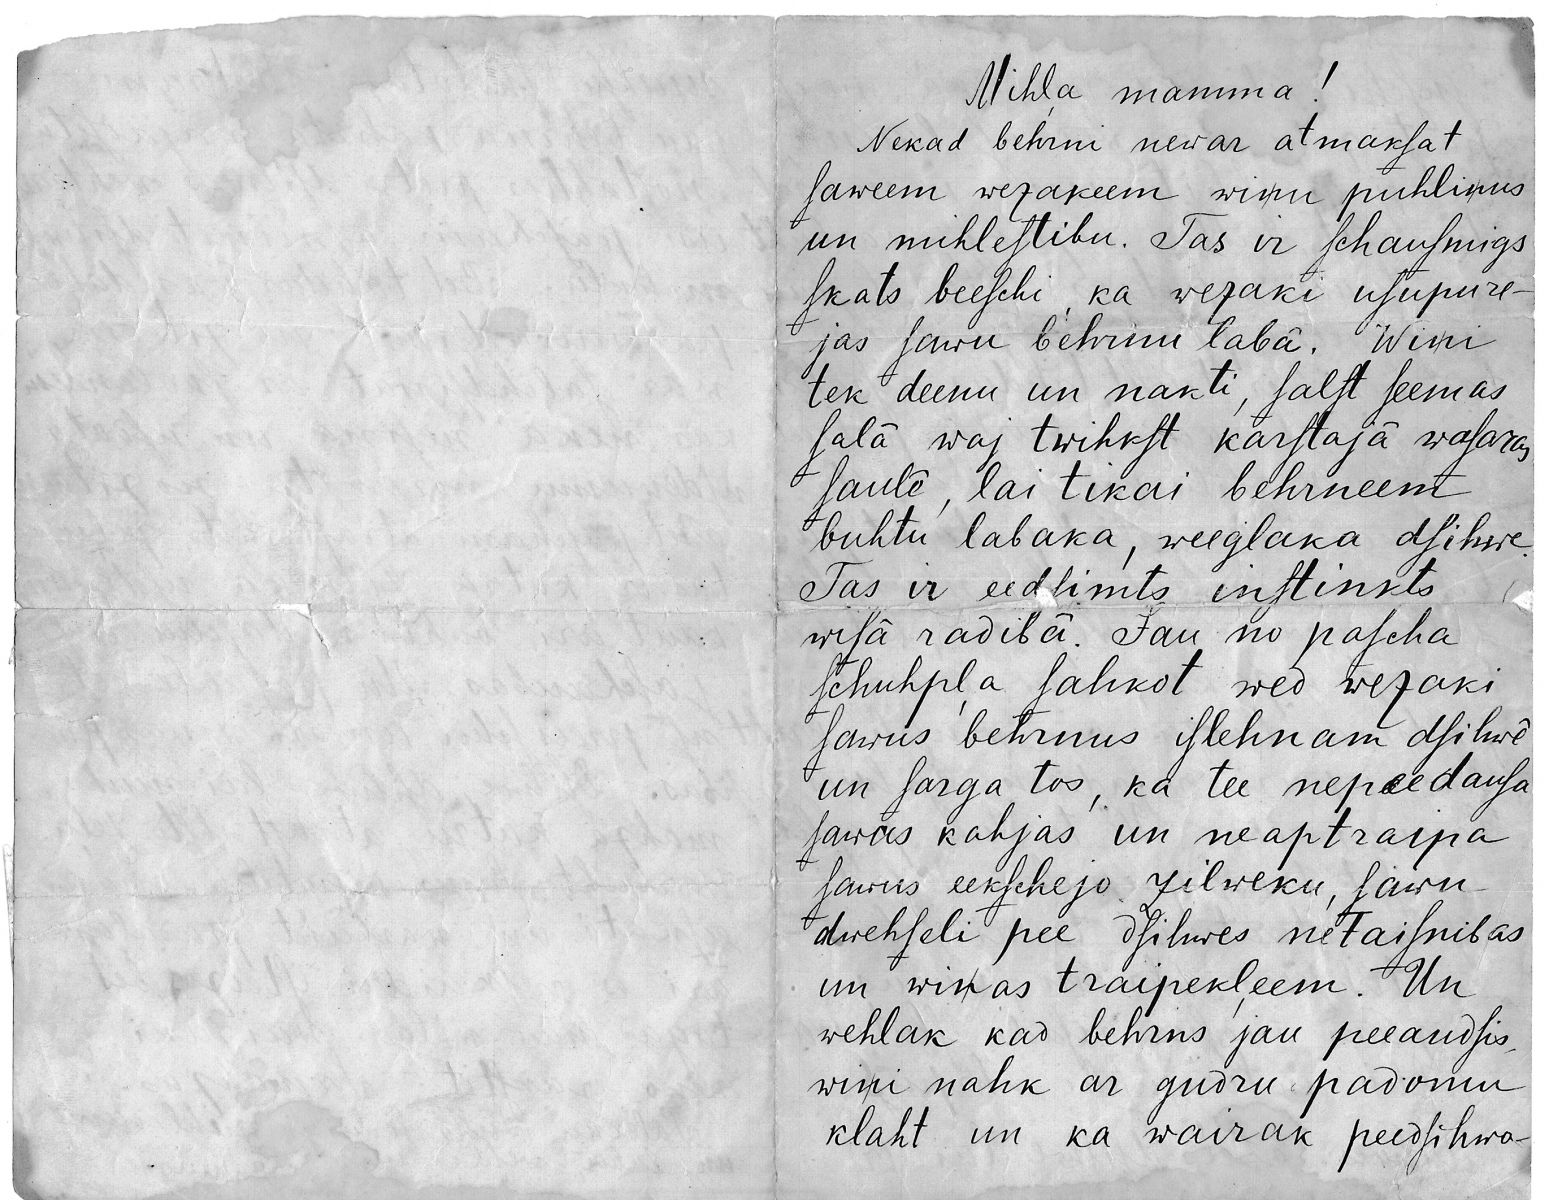 Mihļa mamma!
Nekad behrni newar atmakſat
ſaweem wezakeem wiņu puhliņus
un mihleſtibu. Tas ir ſchauſmigs
ſkats beeſchi, ka wezaki uſupure-
jas ſawu behrnu labā. Wiņi
tek deenu un nakti, ſalſt ſeemas
ſalā waj twihkſt karſtajā waſaras
ſaulē, lai tikai behrneem
buhtu labaka, weeglaka dſihwe.
Tas ir eedſimts inſtinkts
wiſā radibā. Jau no paſcha
ſchuhpļa ſahkot wed wezaki
ſawus behrnus iſlehnam dſihwē
un ſarga tos, ka tee nepeedauſa
ſawas kahjas un neaptraipa
ſawus eekſchejo zilweku, ſawu
dwehſeli pee dſihwes netaiſnibas
un wiņas traipekļeem. Un
wehlak kad behrns jau peeaudſis,
wiņi nahk ar gudru padomu
klaht un ka wairak peedſihwo-